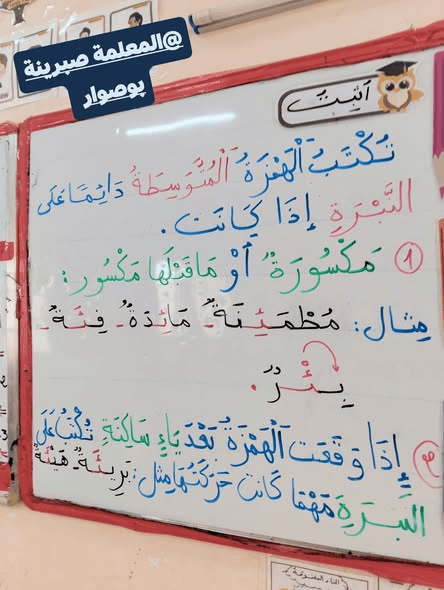 @المعلمة صبرينة
بوصوار
أثبت
تُكْتَبُ الْهَمْزَةُ الْمُتَوَسِّطَةُ دَائِمًا عَلَى
النَّبْرَةِ إِذَا كَانَت .
① مَكْسُورَةً أَوْ مَا قَبْلَهَا مَكْسُور :
مِثال : مُطْمَئِنَةٌ - مَائِدَةٌ - فِئَةٌ -
بِئْرٌ .
② إِذَا وَقَعَت الْهَمْزَةُ بَعْدَ يَاءٍ سَاكِنَةٍ تُكْتَبُ عَلَى
النَبْرَةِ مَهْمَا كَانَت حَرَكَتُهَا مثل : بَرِيئَةٌ - هَيْئَةٌ